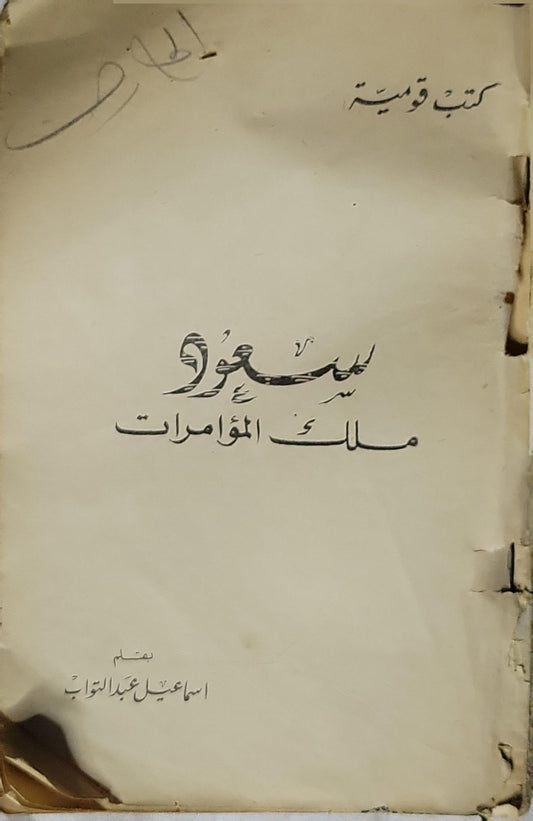 كتب قومية
سعود
ملك المؤامرات
بقلم
اسماعيل عبد التواب